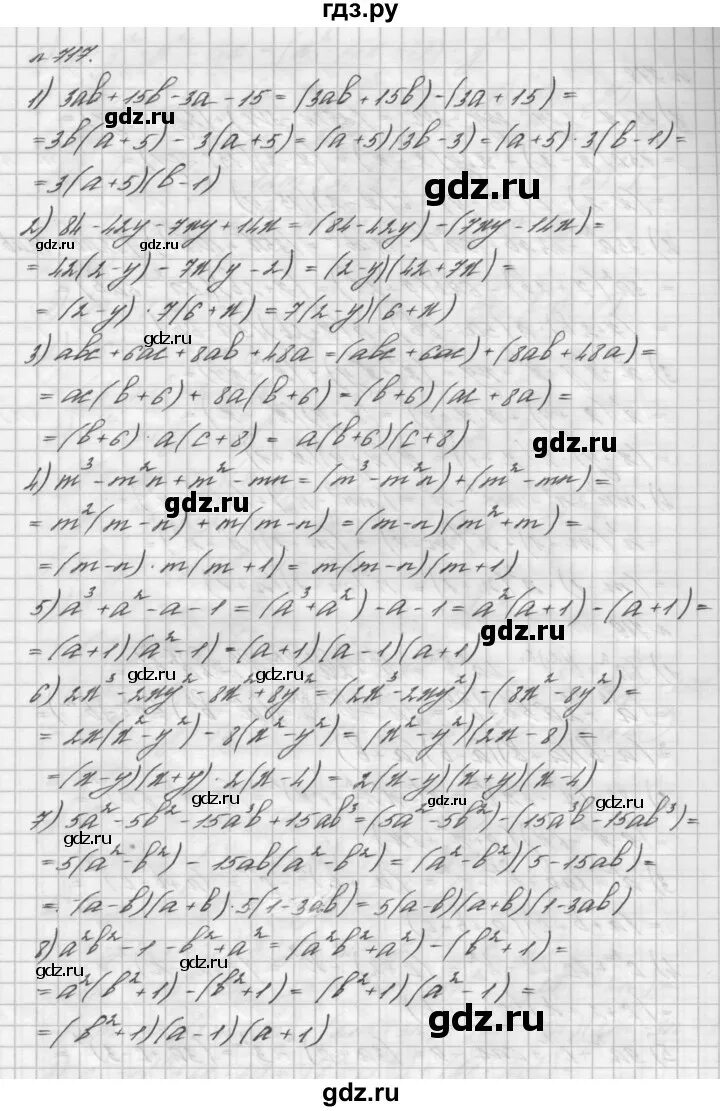 гдз.ру
n 717.
1) 3ab + 15b - 3a - 15 = (3ab + 15b) - (3a + 15) =
= 3b(a + 5) - 3(a + 5) = (a + 5)(3b - 3) = (a + 5) · 3(b - 1) =
gdz.ru
= 3(a + 5)(b - 1)
gdz.ru
2) 84 - 42y - 7xy + 14x = (84 - 42y) - (7xy - 14x) =
gdz.ru
gdz.ru
= 42(2 - y) - 7x(y - 2) = (2 - y)(42 + 7x) =
= (2 - y) · 7(6 + x) = 7(2 - y)(6 + x)
gdz.ru
3) abc + 6ac + 8ab + 48a = (abc + 6ac) + (8ab + 48a) =
= ac(b + 6) + 8a(b + 6) = (b + 6)(ac + 8a) =
= (b + 6) · a(c + 8) = a(b + 6)(c + 8)
gdz.ru
4) m³ - m²n + m² - mn = (m³ - m²n) + (m² - mn) =
gdz.ru
= m²(m - n) + m(m - n) = (m - n)(m² + m) =
= (m - n) · m(m + 1) = m(m - n)(m + 1)
5) a³ + a² - a - 1 = (a³ + a²) - a - 1 = a²(a + 1) - (a + 1) =
gdz.ru
= (a + 1)(a² - 1) = (a + 1)(a - 1)(a + 1)
gdz.ru
gdz.ru
6) 2x³ - 2xy² - 8x² + 8y² = (2x³ - 2xy²) - (8x² - 8y²) =
= 2x(x² - y²) - 8(x² - y²) = (x² - y²)(2x - 8) =
= (x - y)(x + y) · 2(x - 4) = 2(x - y)(x + y)(x - 4)
gdz.ru
gdz.ru
gdz.ru
7) 5a² - 5b² - 15a³b + 15ab³ = (5a² - 5b²) - (15a³b - 15ab³) =
gdz.ru
= 5(a² - b²) - 15ab(a² - b²) = (a² - b²)(5 - 15ab) =
= (a - b)(a + b) · 5(1 - 3ab) = 5(a - b)(a + b)(1 - 3ab)
8) a²b² - 1 - b² + a² = (a²b² + a²) - (b² + 1) =
gdz.ru
gdz.ru
= a²(b² + 1) - (b² + 1) = (b² + 1)(a² - 1) =
gdz.ru
= (b² + 1)(a - 1)(a + 1)
gdz.ru